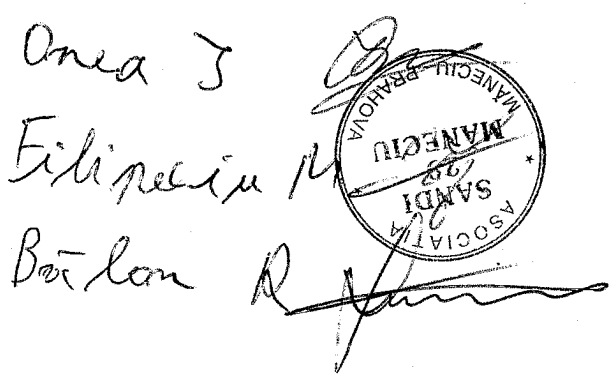 Onea I
Filipeciu M
Bălan R
ASOCIAȚIA
SANDI
MĂNECIU
MĂNECIU - PRAHOVA